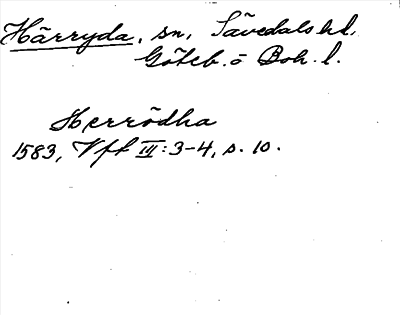 Härryda, sn, Sävedals hd,
Göteb. o Boh. l.
Herrödha
1583, Vff III: 3-4, s. 10.